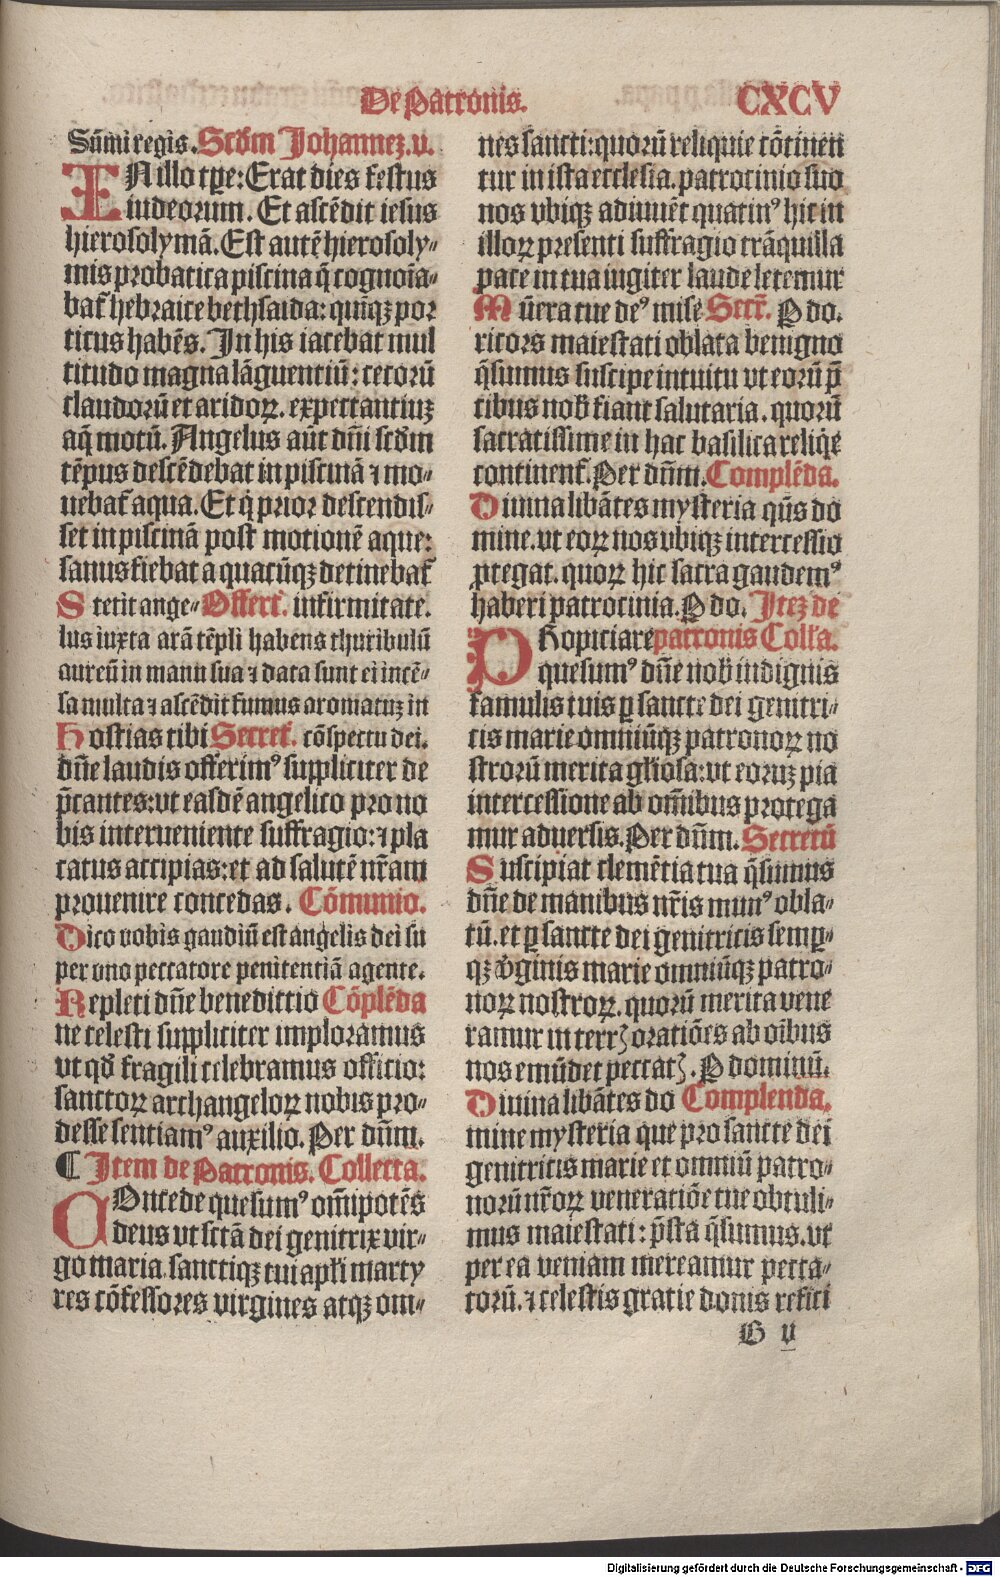 De Patronis.
CXCV
Sūmi regis. Scdm̄ Johannez. v.
IN illo tꝑe: Erat dies festus
iudeorum. Et ascēdit iesus
hierosolymā. Est autē hierosoly⸗
mis probatica piscina q̄ cognoīa⸗
bat̄ hebraice bethsaida: quīqꝫ por
ticus habēs. In his iacebat mul
titudo magna lāguentiū: cecorū
claudorū et aridoꝝ. expectantiuꝫ
aq̄ motū. Angelus aūt dn̄i scdm̄
tēpus descēdebat in piscinā ⁊ mo⸗
uebat̄ aqua. Et q̇ prior descendis⸗
set in piscinā post motionē aque:
sanus fiebat a quacūqꝫ detinebat̄
Stetit ange⸗ Offert̄. infirmitate.
lus iuxta arā tēpli habens thuribulū
aureū in manu sua ⁊ data sunt ei incē⸗
sa multa ⁊ ascēdit fumus aromatuꝫ in
Hostias tibi Secret̄. cōspectu dei.
dn̄e laudis offerimꝰ suppliciter de
p̄cantes: vt easdē angelico pro no
bis interueniente suffragio: ⁊ pla
catus accipias: et ad salutē nr̄am
prouenire concedas. Cōmunio.
Dico vobis gaudiū est angelis dei su
per vno peccatore penitentiā agente.
Repleti dn̄e benedictio Cōplēda
ne celesti suppliciter imploramus
vt qd̄ fragili celebramus officio:
sanctoꝝ archangeloꝝ nobis pro⸗
desse sentiamꝰ auxilio. Per dn̄m.
¶ Item de Patronis. Collecta.
COncede quesumꝰ om̄ipotēs
deus vt sctā dei genitrix vir⸗
go maria. sanctiqꝫ tui apl̄i marty
res cōfessores virgines atqꝫ om⸗
nes sancti: quorū reliquie cōtinen
tur in ista ecclesia. patrocinio suo
nos vbiqꝫ adiuuēt quatinꝰ hic in
illoꝝ presenti suffragio trāquilla
pace in tua iugiter laude letemur
Mūera tue deꝰ mise Secr̄. P do.
ricors maiestati oblata benigno
q̄sumus suscipe intuitu vt eorū p̄
cibus nob̄ fiant salutaria. quorū
sacratissime in hac basilica reliq̇e
continent̄. Per dn̄m. Complēda.
Diuina libātes mysteria qūs do
mine. vt eoꝝ nos vbiqꝫ intercessio
ꝓtegat. quoꝝ hic sacra gaudemꝰ
haberi patrocinia. P do. Iteꝫ de
PRopiciare patronis Coll'a.
quesumꝰ dn̄e nob̄ indignis
famulis tuis ꝑ sancte dei genitri⸗
cis marie omniūqꝫ patronoꝝ no
strorū merita gl̄iosa: vt eoruꝫ pia
intercessione ab om̄ibus protega
mur aduersis. Per dn̄m. Secretū
Suscipiat clemētia tua q̄sumus
dn̄e de manibus nr̄is munꝰ obla⸗
tū. et ꝑ sancte dei genitricis semꝑ⸗
qꝫ v̄ginis marie omniūqꝫ patro⸗
noꝝ nostroꝝ. quorū merita vene
ramur in terrꝫ oratiōes ab oībus
nos emūdet peccatꝫ. P dominū.
Diuina libātes do Complenda.
mine mysteria que pro sancte dei
genitricis marie et omniū patro⸗
norū nr̄oꝝ veneratiōe tue obtuli⸗
mus maiestati: p̄sta q̄sumus. vt
per ea veniam mereamur pecca⸗
torū. ⁊ celestis gratie donis refici
G v
Digitalisierung gefördert durch die Deutsche Forschungsgemeinschaft - DFG